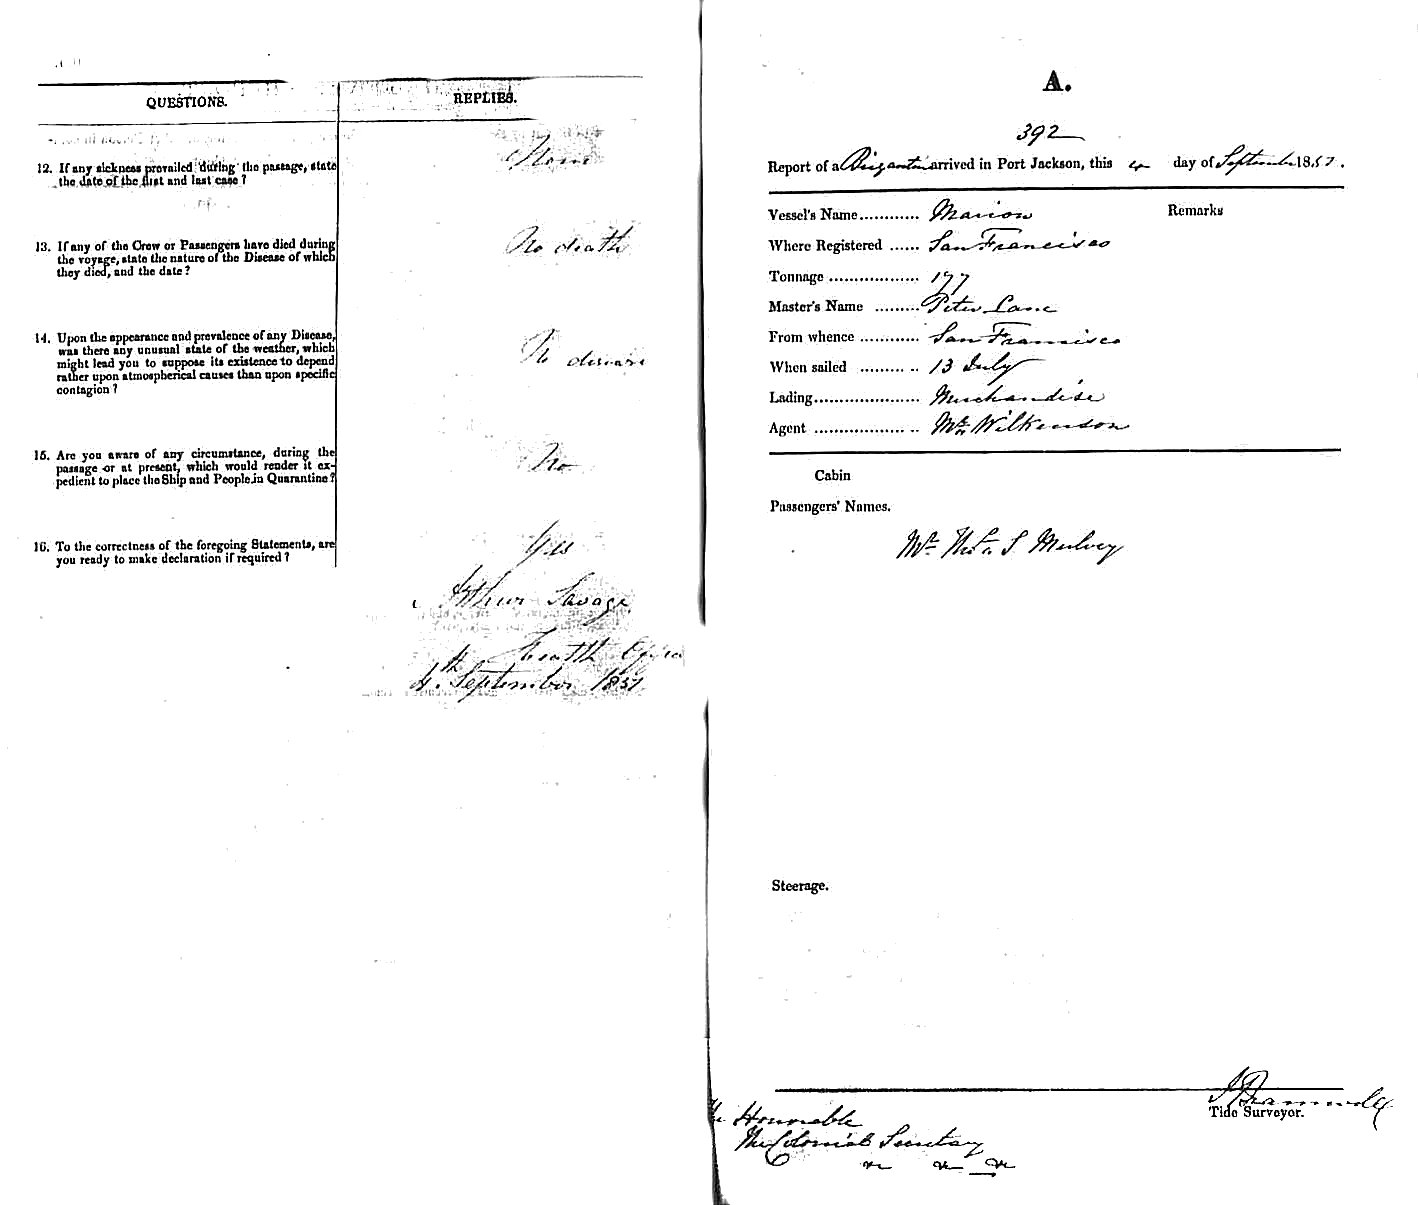 QUESTIONS.
REPLIES.
12. If any sickness prevailed during the passage, state
the date of the first and last case?
None
13. If any of the Crew or Passengers have died during
the voyage, state the nature of the Disease of which
they died, and the date?
No death
14. Upon the appearance and prevalence of any Disease,
was there any unusual state of the weather, which
might lead you to suppose its existence to depend
rather upon atmospherical causes than upon specific
contagion?
No disease
15. Are you aware of any circumstance, during the
passage or at present, which would render it ex-
pedient to place the Ship and People in Quarantine?
No
16. To the correctness of the foregoing Statements, are
you ready to make declaration if required?
Yes
Arthur Savage
Health Officer
4th September 1857
A.
392
Report of a Brigantine arrived in Port Jackson, this 4 day of September 1857.
Vessel's Name............ Marion
Remarks
Where Registered ...... San Francisco
Tonnage .................. 177
Master's Name ......... Peter Lane
From whence ............ San Francisco
When sailed ......... .. 13 July
Lading..................... Merchandise
Agent .................. .. Mr Wilkenson
Cabin
Passengers' Names.
Mr Thos S Mulvey
Steerage.
J Bramwell
Tide Surveyor.
The Honorable
The Colonial Secretary